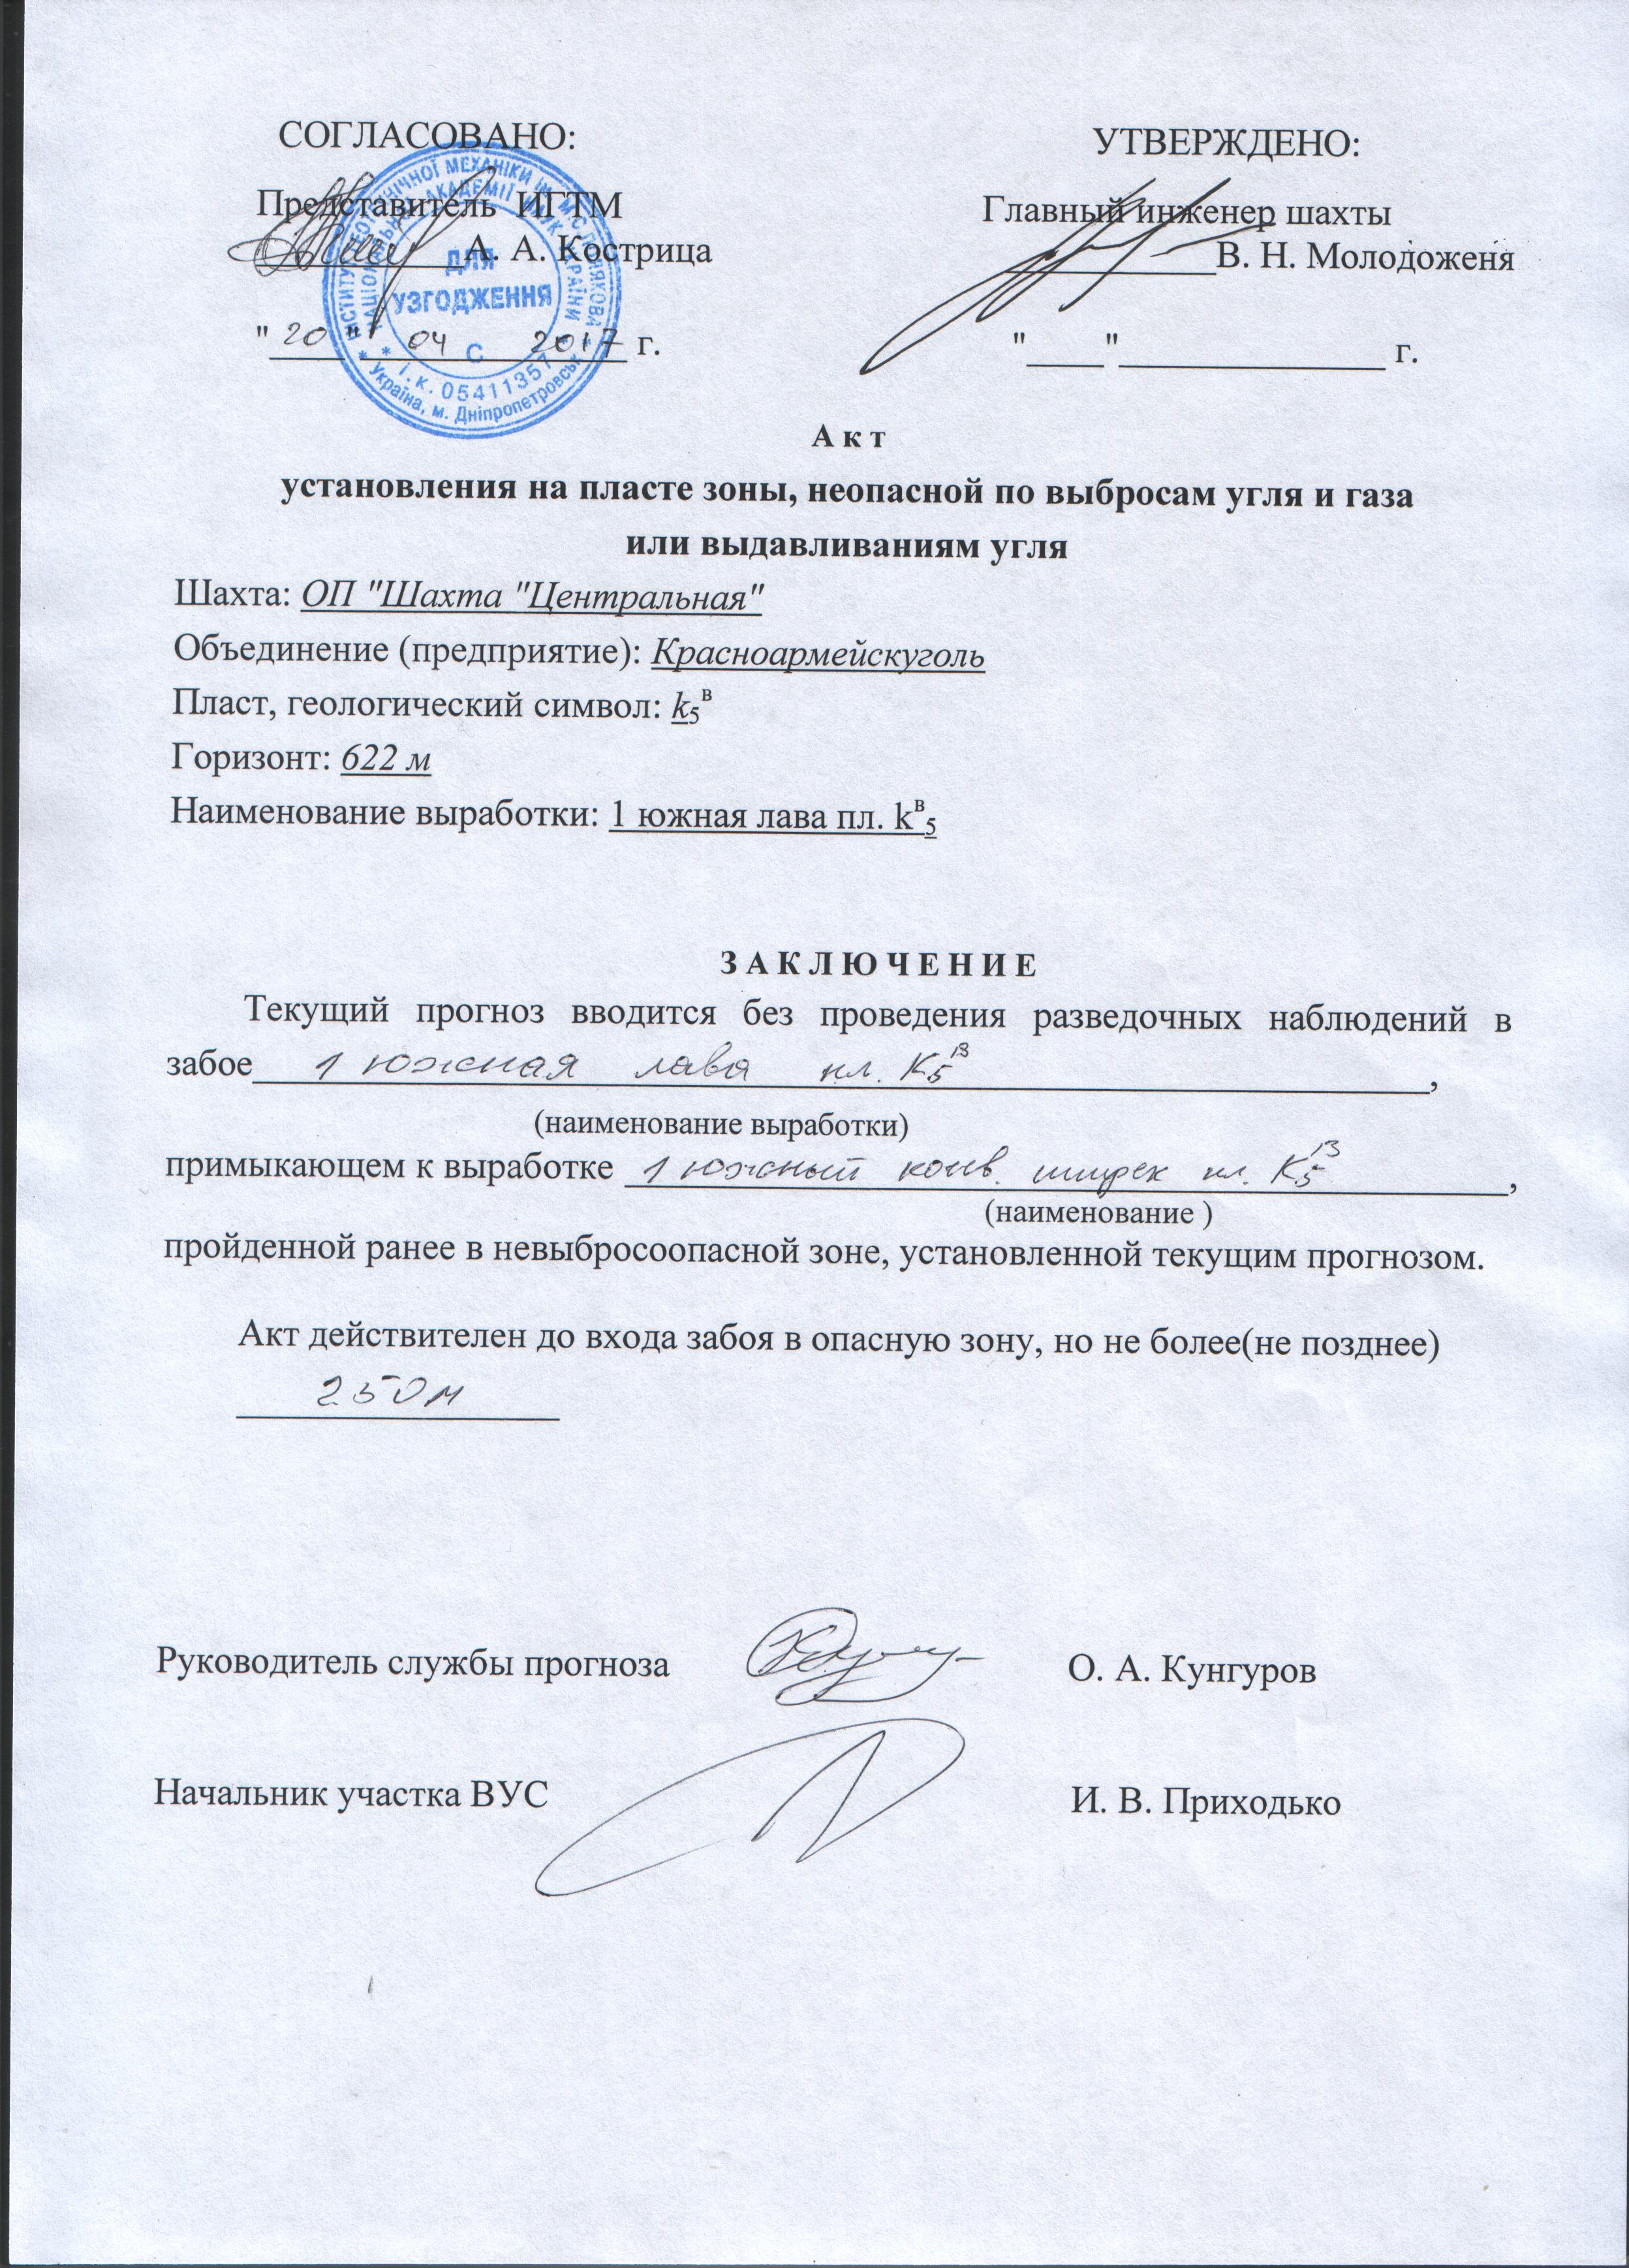 СОГЛАСОВАНО:
Представитель ИГТМ
А. А. Кострица
"20" 04 2017 г.
ІНСТИТУТ ГЕОТЕХНІЧНОЇ МЕХАНІКИ ім. М.С. ПОЛЯКОВА
НАЦІОНАЛЬНОЇ АКАДЕМІЇ НАУК УКРАЇНИ
ДЛЯ
УЗГОДЖЕННЯ
С
* і.к. 05411357 *
* Україна, м. Дніпропетровськ *
УТВЕРЖДЕНО:
Главный инженер шахты
____________В. Н. Молодоженя
"____" ______________ г.
А к т
установления на пласте зоны, неопасной по выбросам угля и газа
или выдавливаниям угля
Шахта: ОП "Шахта "Центральная"
Объединение (предприятие): Красноармейскуголь
Пласт, геологический символ: k₅ᵛ
Горизонт: 622 м
Наименование выработки: 1 южная лава пл. kᵛ₅
З А К Л Ю Ч Е Н И Е
Текущий прогноз вводится без проведения разведочных наблюдений в
забое 1 южная лава пл. К₅ᵛ,
(наименование выработки)
примыкающем к выработке 1 южный конв. штрек пл. К₅ᵛ,
(наименование )
пройденной ранее в невыбросоопасной зоне, установленной текущим прогнозом.
Акт действителен до входа забоя в опасную зону, но не более(не позднее)
250м
Руководитель службы прогноза О. А. Кунгуров
Начальник участка ВУС И. В. Приходько